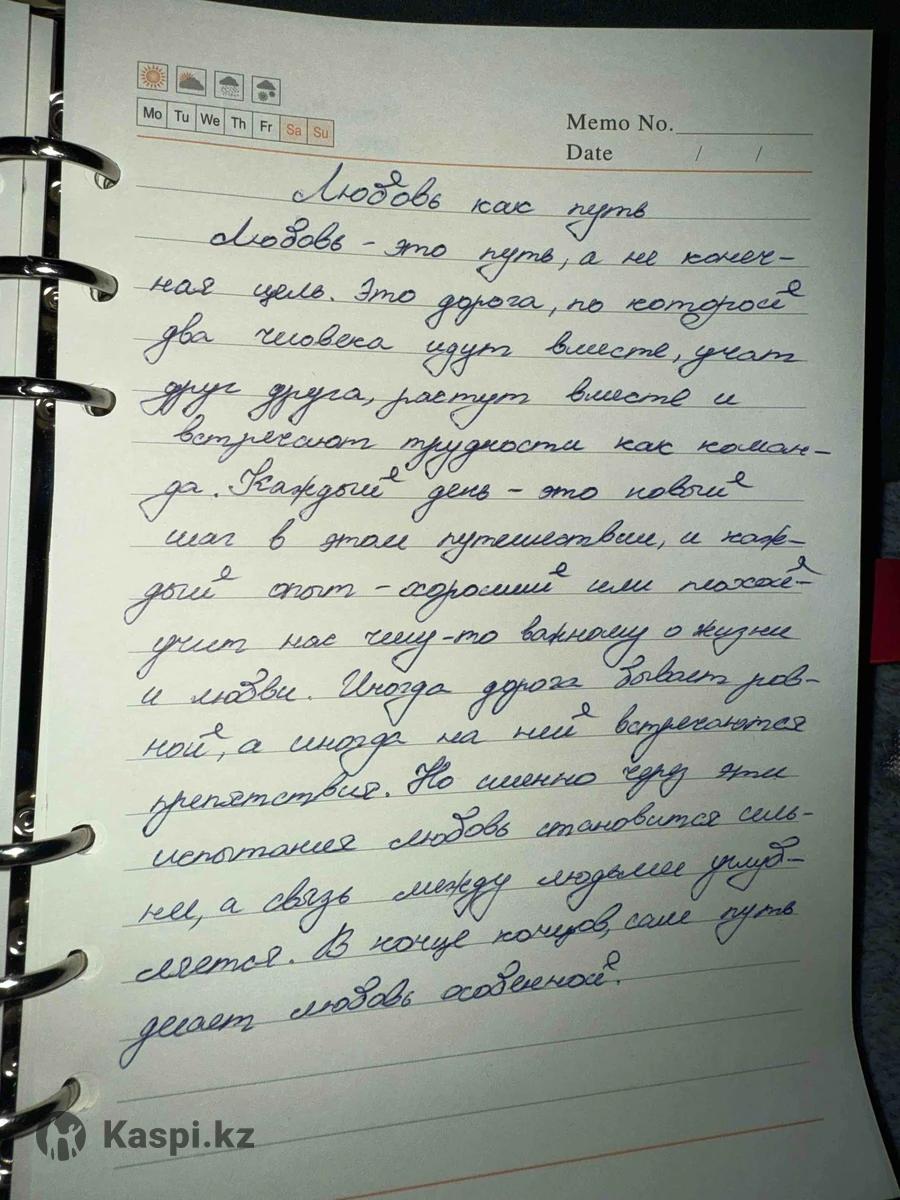 Mo Tu We Th Fr Sa Su
Memo No.
Date / /
Любовь как путь
Любовь - это путь, а не конеч-
ная цель. Это дорога, по которой
два человека идут вместе, учат
друг друга, растут вместе и
встречают трудности как коман-
да. Каждый день - это новый
шаг в этом путешествии, и каж-
дый опыт - хороший или плохой -
учит нас чему-то важному о жизни
и любви. Иногда дорога бывает ров-
ной, а иногда на ней встречаются
препятствия. Но именно через эти
испытания любовь становится силь-
ней, а связь между людьми углуб-
ляется. В конце концов, сам путь
делает любовь особенной.
Kaspi.kz